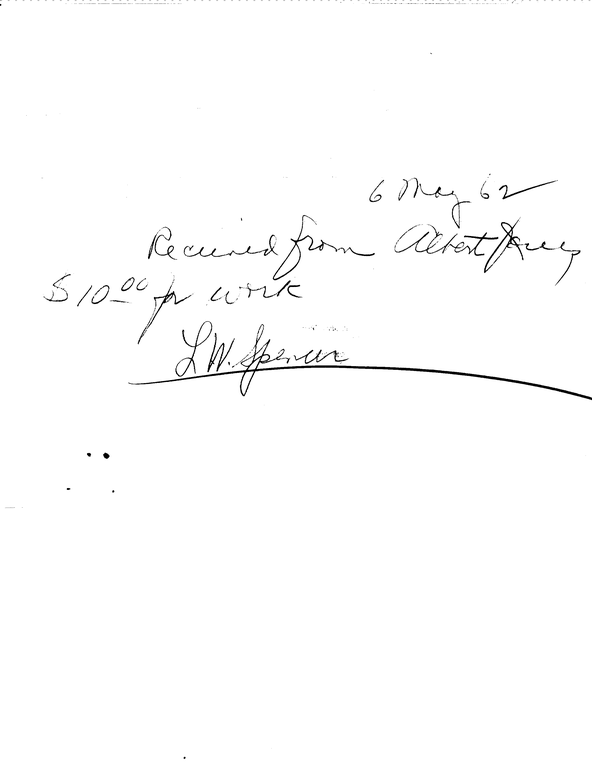 6 May 62
Received from Albert
$10.00 for work
L W. Spencer